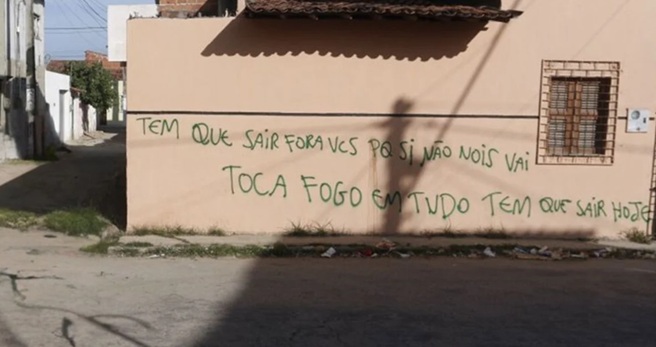 TEM QUE SAIR FORA VCS PQ SI NÃO NOIS VAI
TOCA FOGO EM TUDO TEM QUE SAIR HOJE